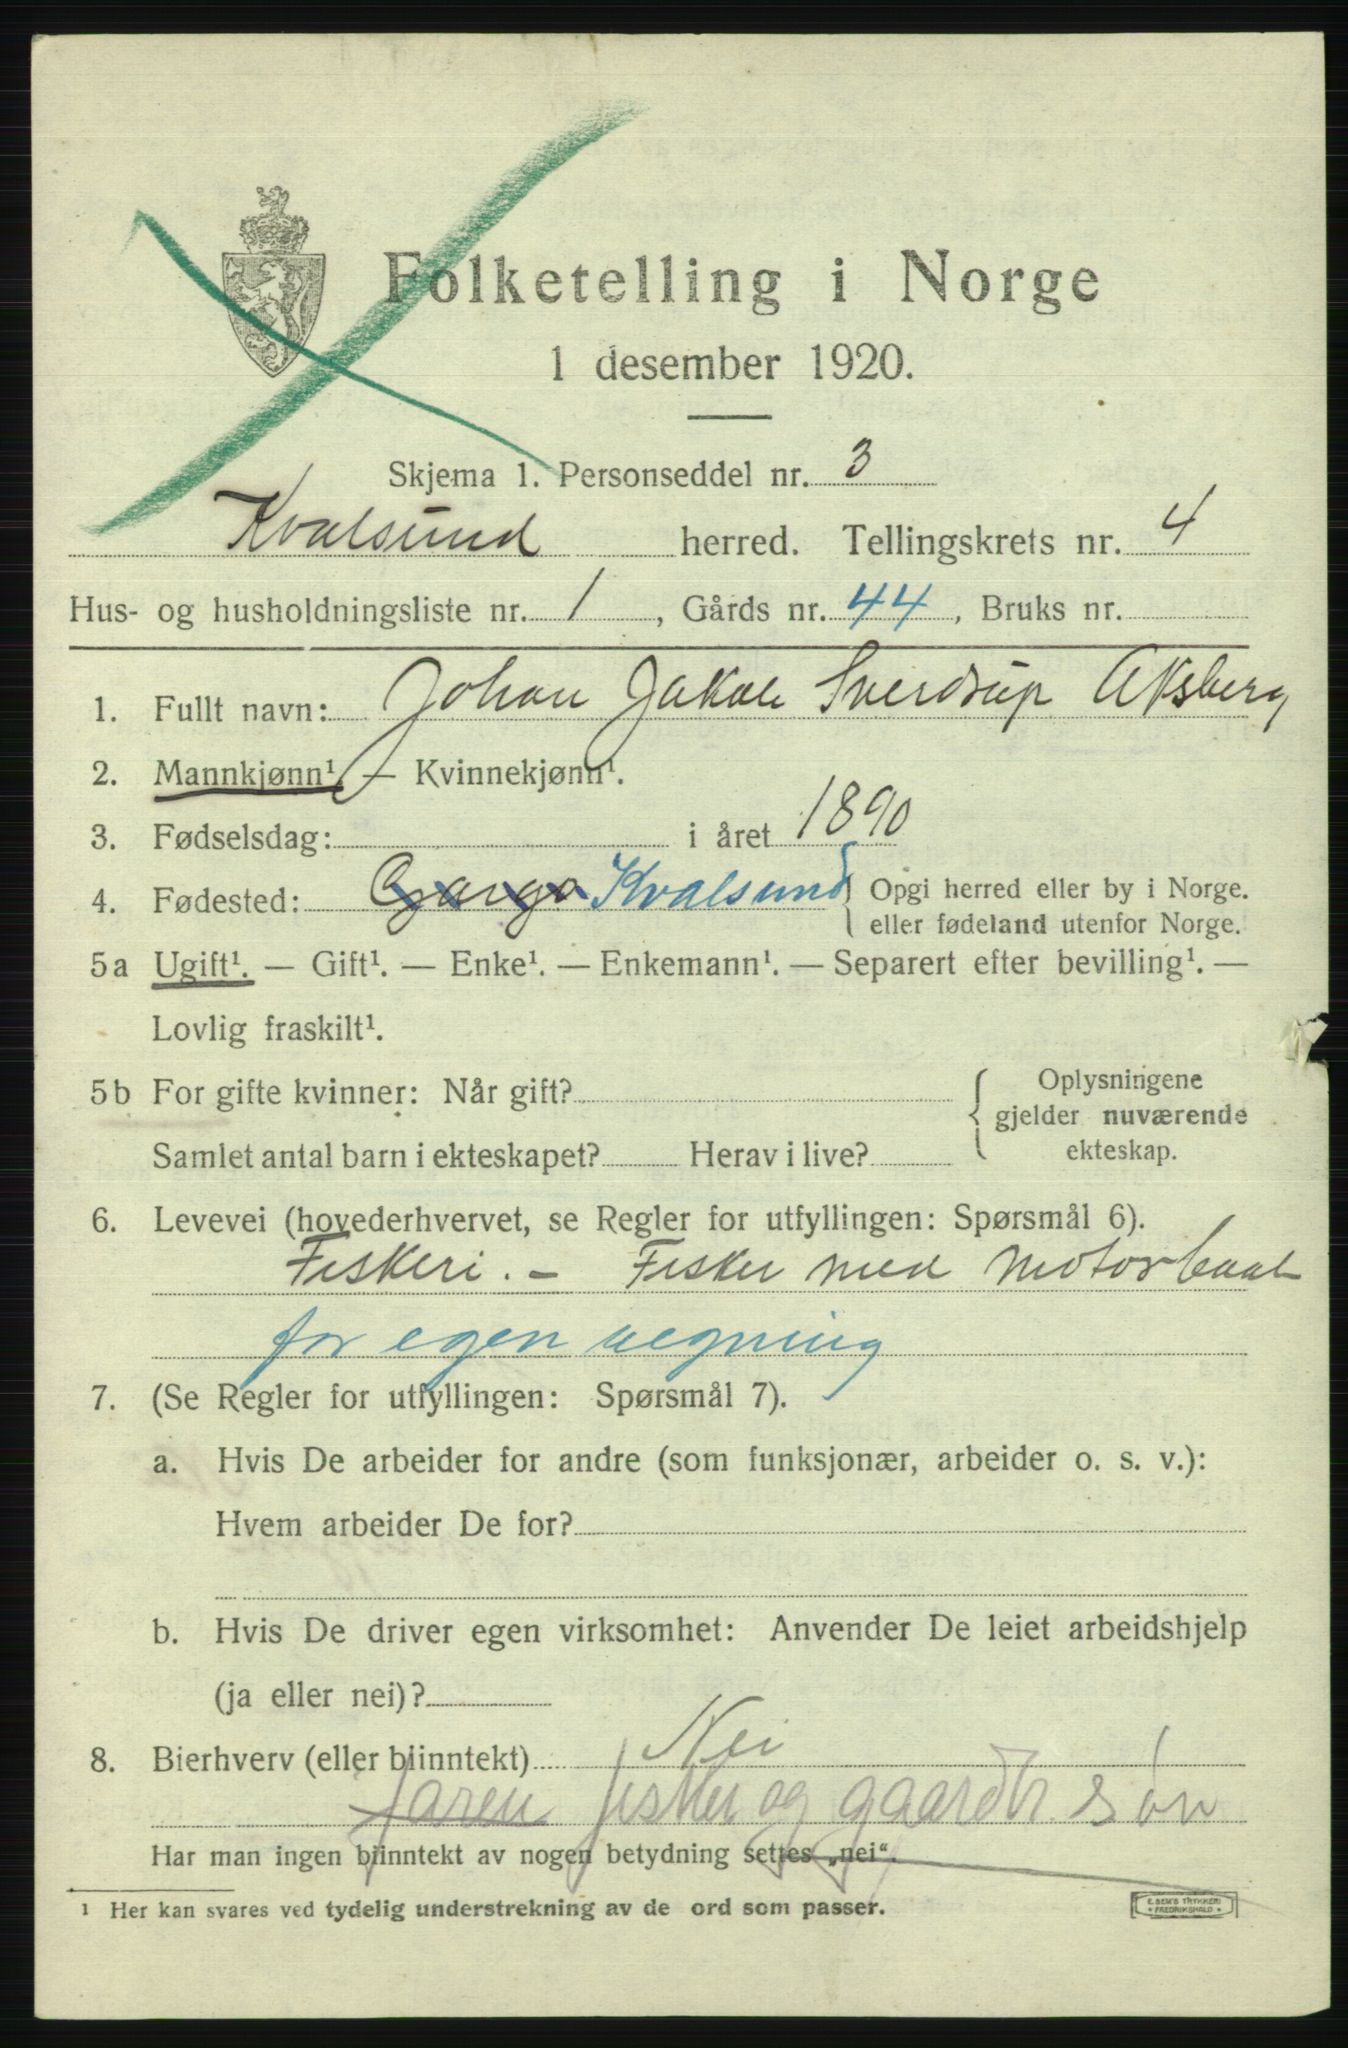 Folketelling i Norge
1 desember 1920.
Skjema 1. Personseddel nr. 3
Kvalsund herred. Tellingskrets nr. 4
Hus- og husholdningsliste nr. 1, Gårds nr. 44, Bruks nr.
1. Fullt navn: Johan Jakob Sverdrup Aksberg
2. Mannkjønn¹. — Kvinnekjønn¹.
3. Fødselsdag: i året 1890
4. Fødested: Gargo Kvalsund Opgi herred eller by i Norge.
eller fødeland utenfor Norge.
5a Ugift¹. — Gift¹. — Enke¹. — Enkemann¹. — Separert efter bevilling¹. —
Lovlig fraskilt¹.
5b For gifte kvinner: Når gift? Oplysningene
gjelder nuværende
Samlet antal barn i ekteskapet? Herav i live? ekteskap.
6. Levevei (hovederhvervet, se Regler for utfyllingen: Spørsmål 6).
Fiskeri. – Fisker med Motorbaat
for egen regning
7. (Se Regler for utfyllingen: Spørsmål 7).
a. Hvis De arbeider for andre (som funksjonær, arbeider o. s. v.):
Hvem arbeider De for?
b. Hvis De driver egen virksomhet: Anvender De leiet arbeidshjelp
(ja eller nei)?
8. Bierhverv (eller biinntekt) Nei
faren fisker og gaardbr. søn
Har man ingen biinntekt av nogen betydning settes „nei“.
¹ Her kan svares ved tydelig understrekning av de ord som passer.
E. SEM'S TRYKKERI
FREDRIKSHALD